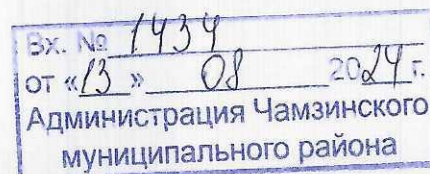 Вх. № 1434
от «13» 08 2024 г.
Администрация Чамзинского
муниципального района